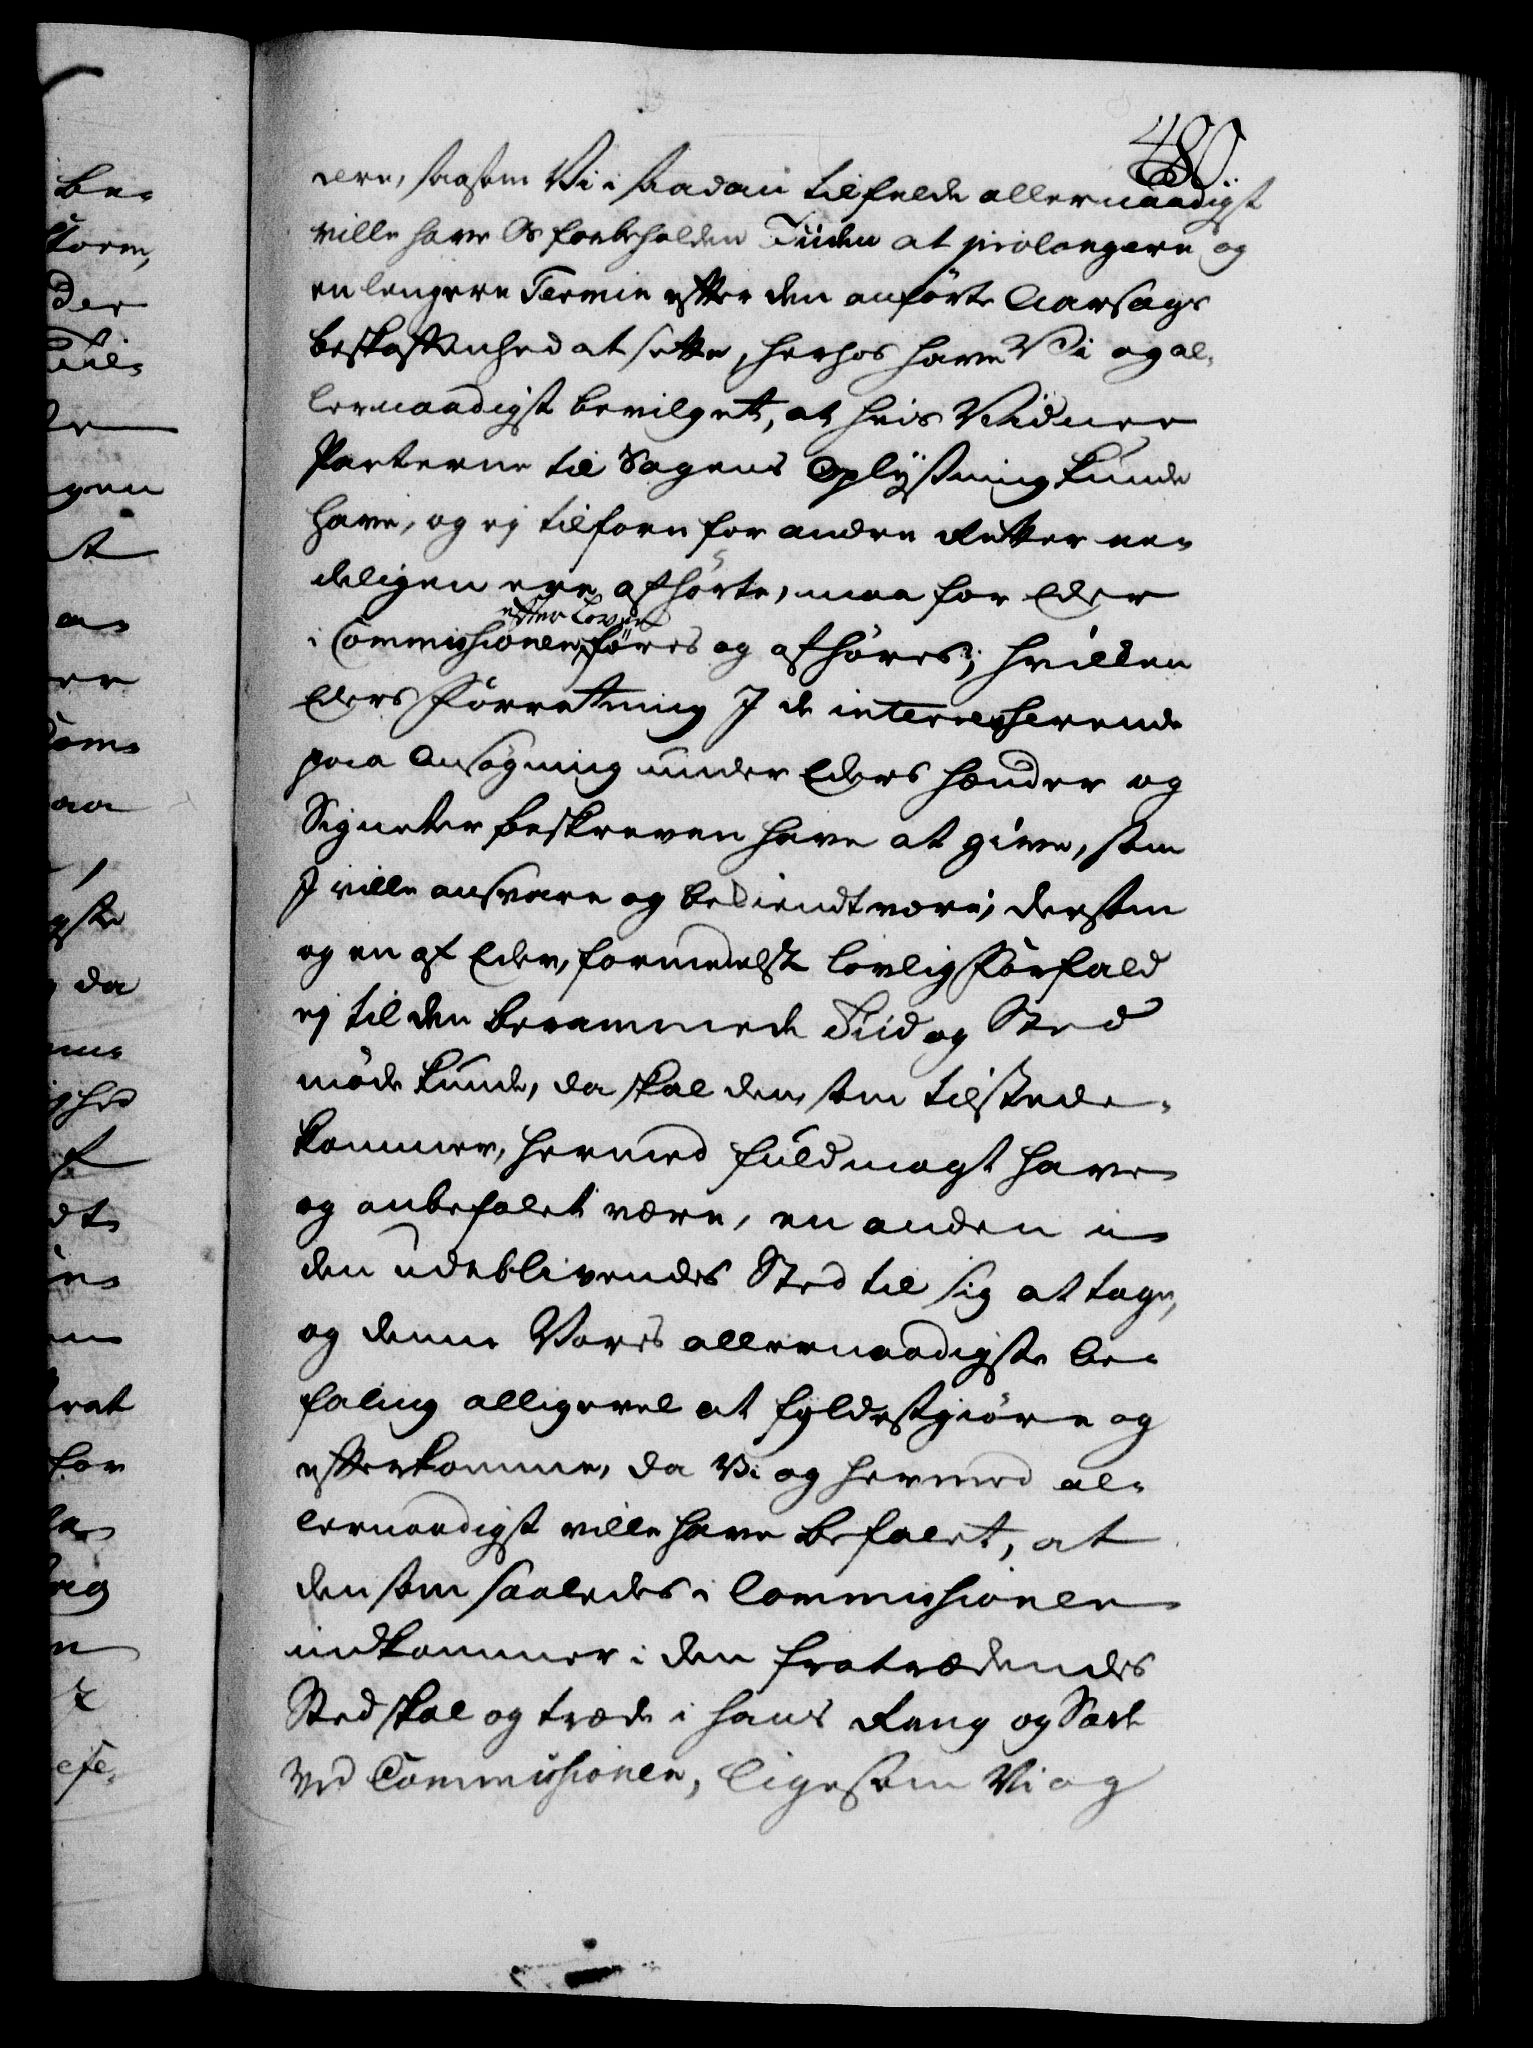 480
dere, saasom Vi i saadan tilfelde allernaadigst
ville have Os forbeholden Tiiden at prolongere og
en lengere Termin efter den anførte Aarsags
beskaffenhed at sette, herhos have Vi og al-
lernaadigst bevilget, at hvis Vidner
Parterne til Sagens Oplysning kunde
have, og ej tilforn for andre Retter een-
deligen ere afhørte, maa for Eder
efter Loven
i Commissionen føres og afhøres; hvilken
Eders Forretning I de interesserende
paa Ansøgning under Eders hænder og
Signeter beskreven have at give, som
I ville ansvare og bekiendt være; dersom
og en af Eder, formedelst lovlig Forfald
ej til den berammede Tiid og Sted
møde kunde, da skal den, som tilstede-
kommer, hermed fuldmagt have
og anbefalet være, en anden i
den udeblivendes Sted til sig at tage,
og denne Vores allernaadigste be-
faling alligevel at fyldestgiøre og
efterkomme, da Vi og hermed al-
lernaadigst ville have befalet, at
den som saaledes i Commissionen
indkommer i den fratrædendes
Sted skal og træde i hans Rang og Sæde
ved Commissionen, ligesom Vi og
be-
der
gen
t
da
dt
for